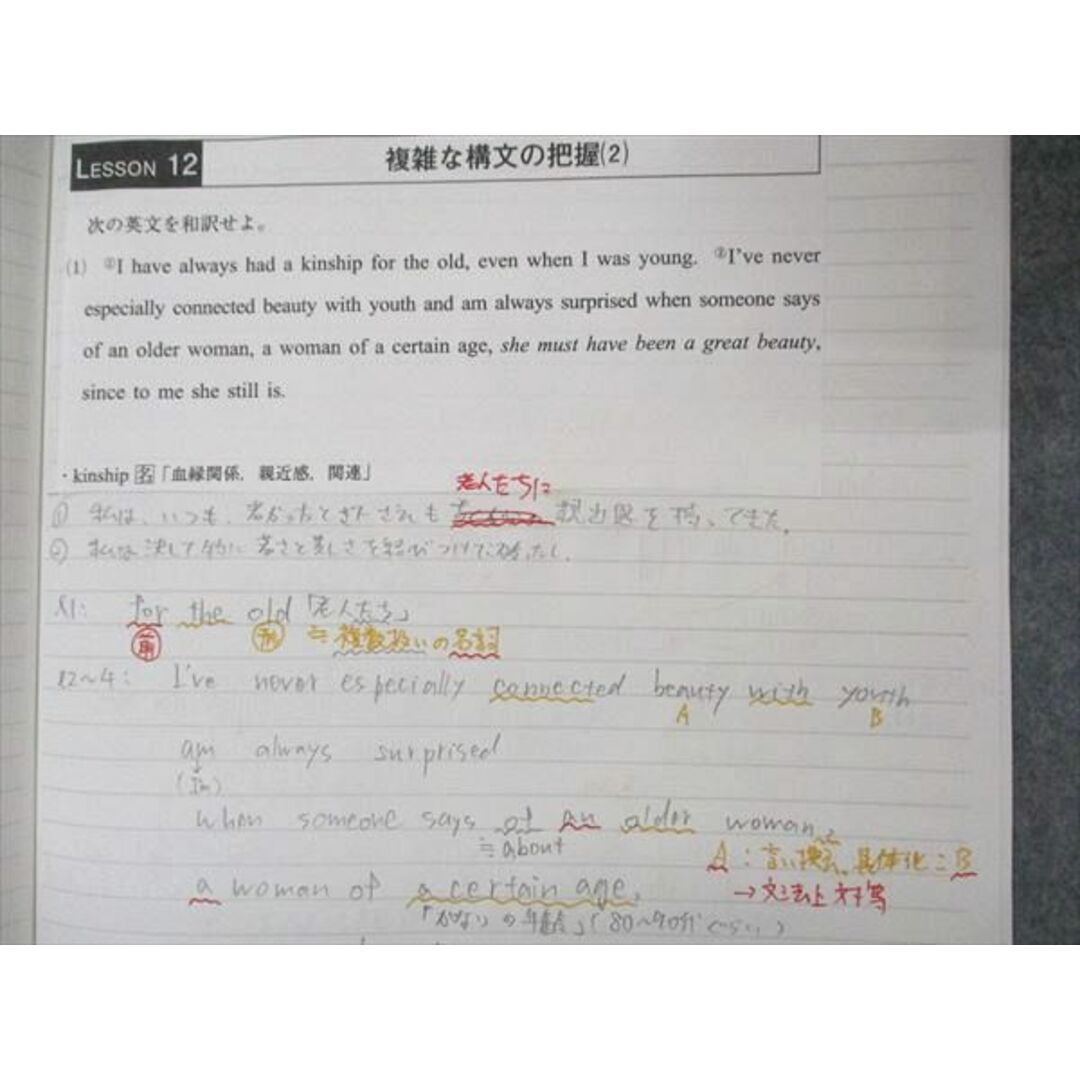 LESSON 12 複雑な構文の把握(2)
次の英文を和訳せよ。
(1) ①I have always had a kinship for the old, even when I was young. ②I've never
especially connected beauty with youth and am always surprised when someone says
of an older woman, a woman of a certain age, she must have been a great beauty,
since to me she still is.
・kinship 名「血縁関係, 親近感, 関連」
老人たちに
① 私は、いつも、若かったときでさえも 親近感を持ってきた。
② 私は決して 若さと美しさを結びつけて
l1: for the old 「老人たち」
前 形 ≒ 複数扱いの名詞
l2~4: I've never especially connected beauty with youth
A B
am always surprised
(I'm)
when someone says of an older woman,
≒ about
A : 言い換え、具体化 : B
a woman of a certain age,
→文法上対等
「かなりの年齢」(80~90才ぐらい)